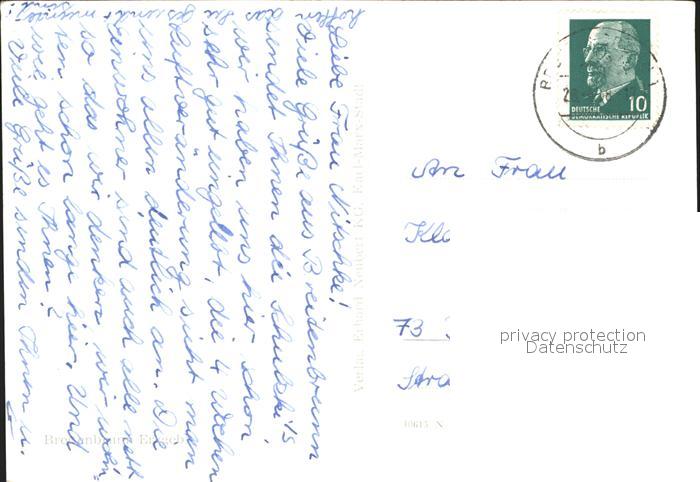 Liebe Frau Nitschke!
Viele Grüße aus Breitenbrunn
sendet Ihnen die
wir haben uns hier schon
sehr gut eingelebt, die 4 Wochen
Luftveränderung sieht man
uns allen deutlich an. Die
Einwohner sind auch alle nett
so das wir denken wir wären
schon lange hier. Und
wie geht es Ihnen?
Viele Grüße senden Ihnen u.
hoffen das Sie
gesund u. munter
sind.
Verlag Erhard Neubert KG, Karl-Marx-Stadt
Breitenbrunn Erzgeb
10615 N
DEUTSCHE
DEMOKRATISCHE REPUBLIK
10
b
An Frau
73
privacy protection
Datenschutz